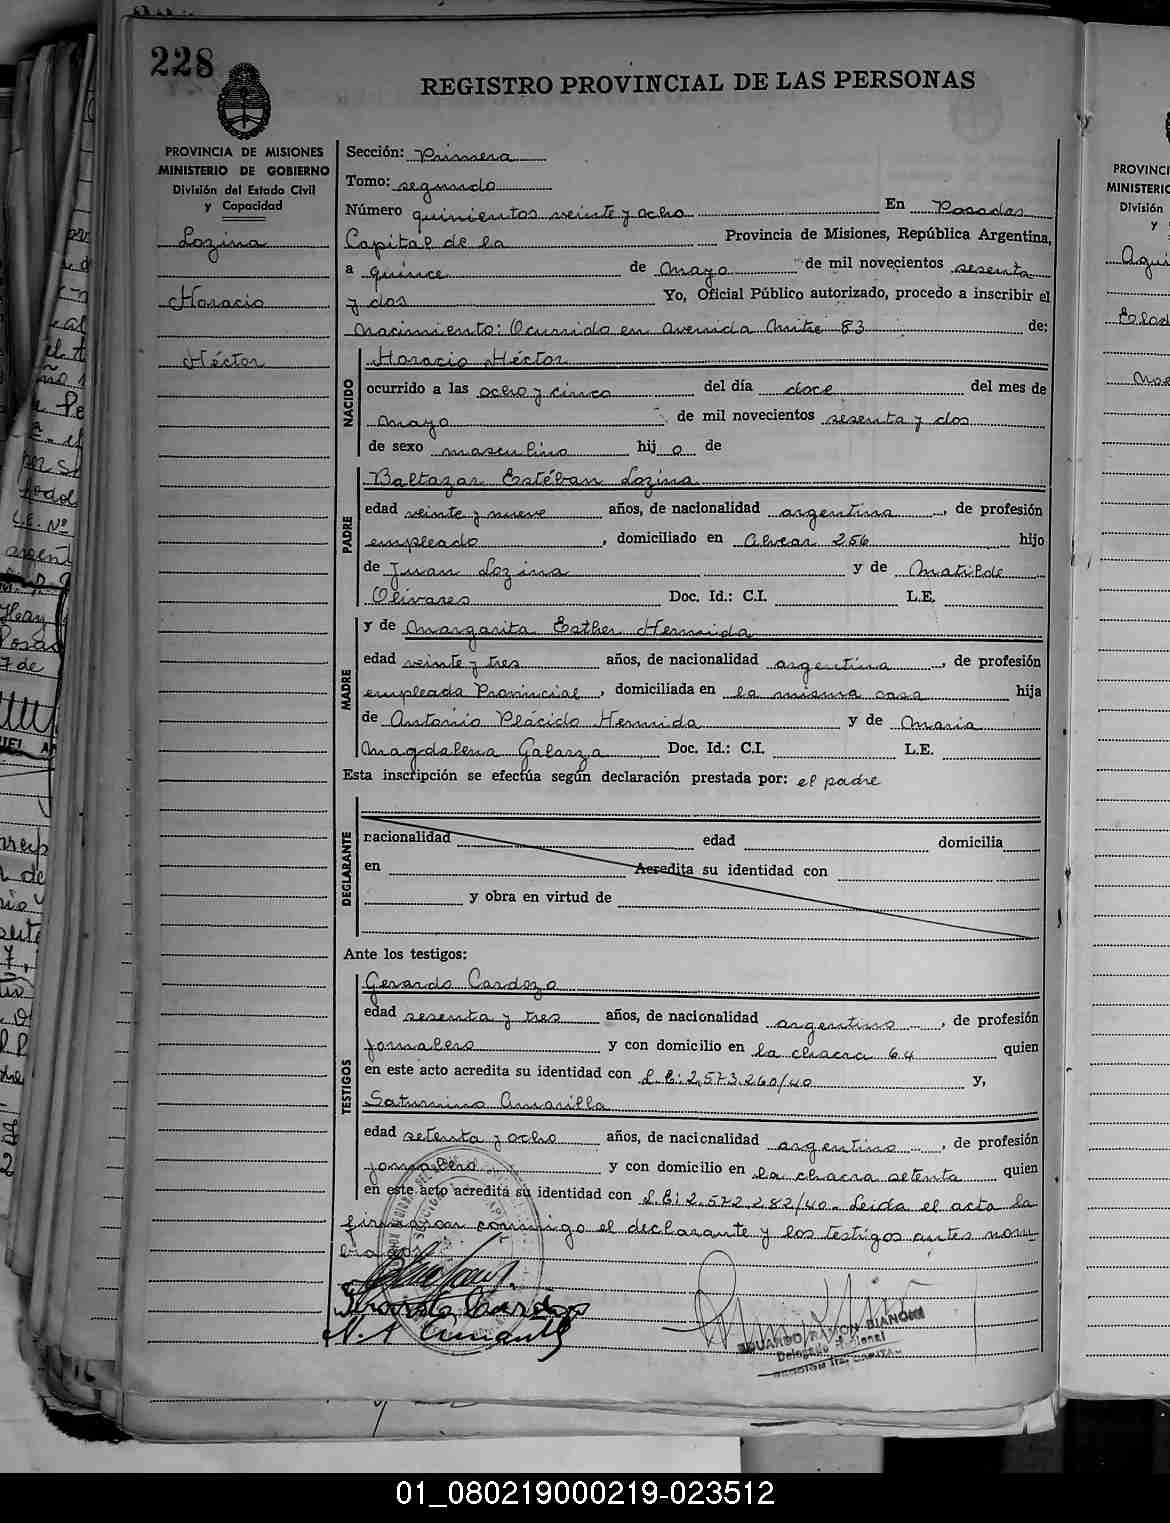 228
REGISTRO PROVINCIAL DE LAS PERSONAS
PROVINCIA DE MISIONES
MINISTERIO DE GOBIERNO
División del Estado Civil
y Capacidad
Lozina
Horacio
Héctor
Sección: Primera
Tomo: segundo
Número quinientos veinte y ocho En Posadas
Capital de la Provincia de Misiones, República Argentina,
a quince de Mayo de mil novecientos sesenta
y dos Yo, Oficial Público autorizado, procedo a inscribir el
Nacimiento: Ocurrido en Avenida Mitre 83 de:
NACIDO
Horacio Héctor
ocurrido a las ocho y cinco del día doce del mes de
Mayo de mil novecientos sesenta y dos
de sexo masculino hij o de
PADRE
Baltazar Estéban Lozina
edad veinte y nueve años, de nacionalidad argentina, de profesión
empleado, domiciliado en Alvear 256 hijo
de Juan Lozina y de Matilde
Olivares Doc. Id.: C.I. L.E.
MADRE
y de Margarita Esther Hermida
edad veinte y tres años, de nacionalidad argentina, de profesión
empleada Provincial, domiciliada en la misma casa hija
de Antonio Plácido Hermida y de Maria
Magdalena Galarza Doc. Id.: C.I. L.E.
Esta inscripción se efectúa según declaración prestada por: el padre
DECLARANTE
nacionalidad edad domicilia
en Acredita su identidad con
y obra en virtud de
Ante los testigos:
TESTIGOS
Gerardo Cardozo
edad sesenta y tres años, de nacionalidad argentino, de profesión
jornalero y con domicilio en la chacra 64 quien
en este acto acredita su identidad con L.E: 2,573.260/40 y,
Saturnino Amarilla
edad setenta y ocho años, de nacionalidad argentino, de profesión
jornalero y con domicilio en la chacra setenta quien
en este acto acredita su identidad con L.E: 2.572.282/40. Leida el acta la
firmaron conmigo el declarante y los testigos antes nom-
brados
EDUARDO RAMON BIANCHI
Delegado Seccional
01_080219000219-023512